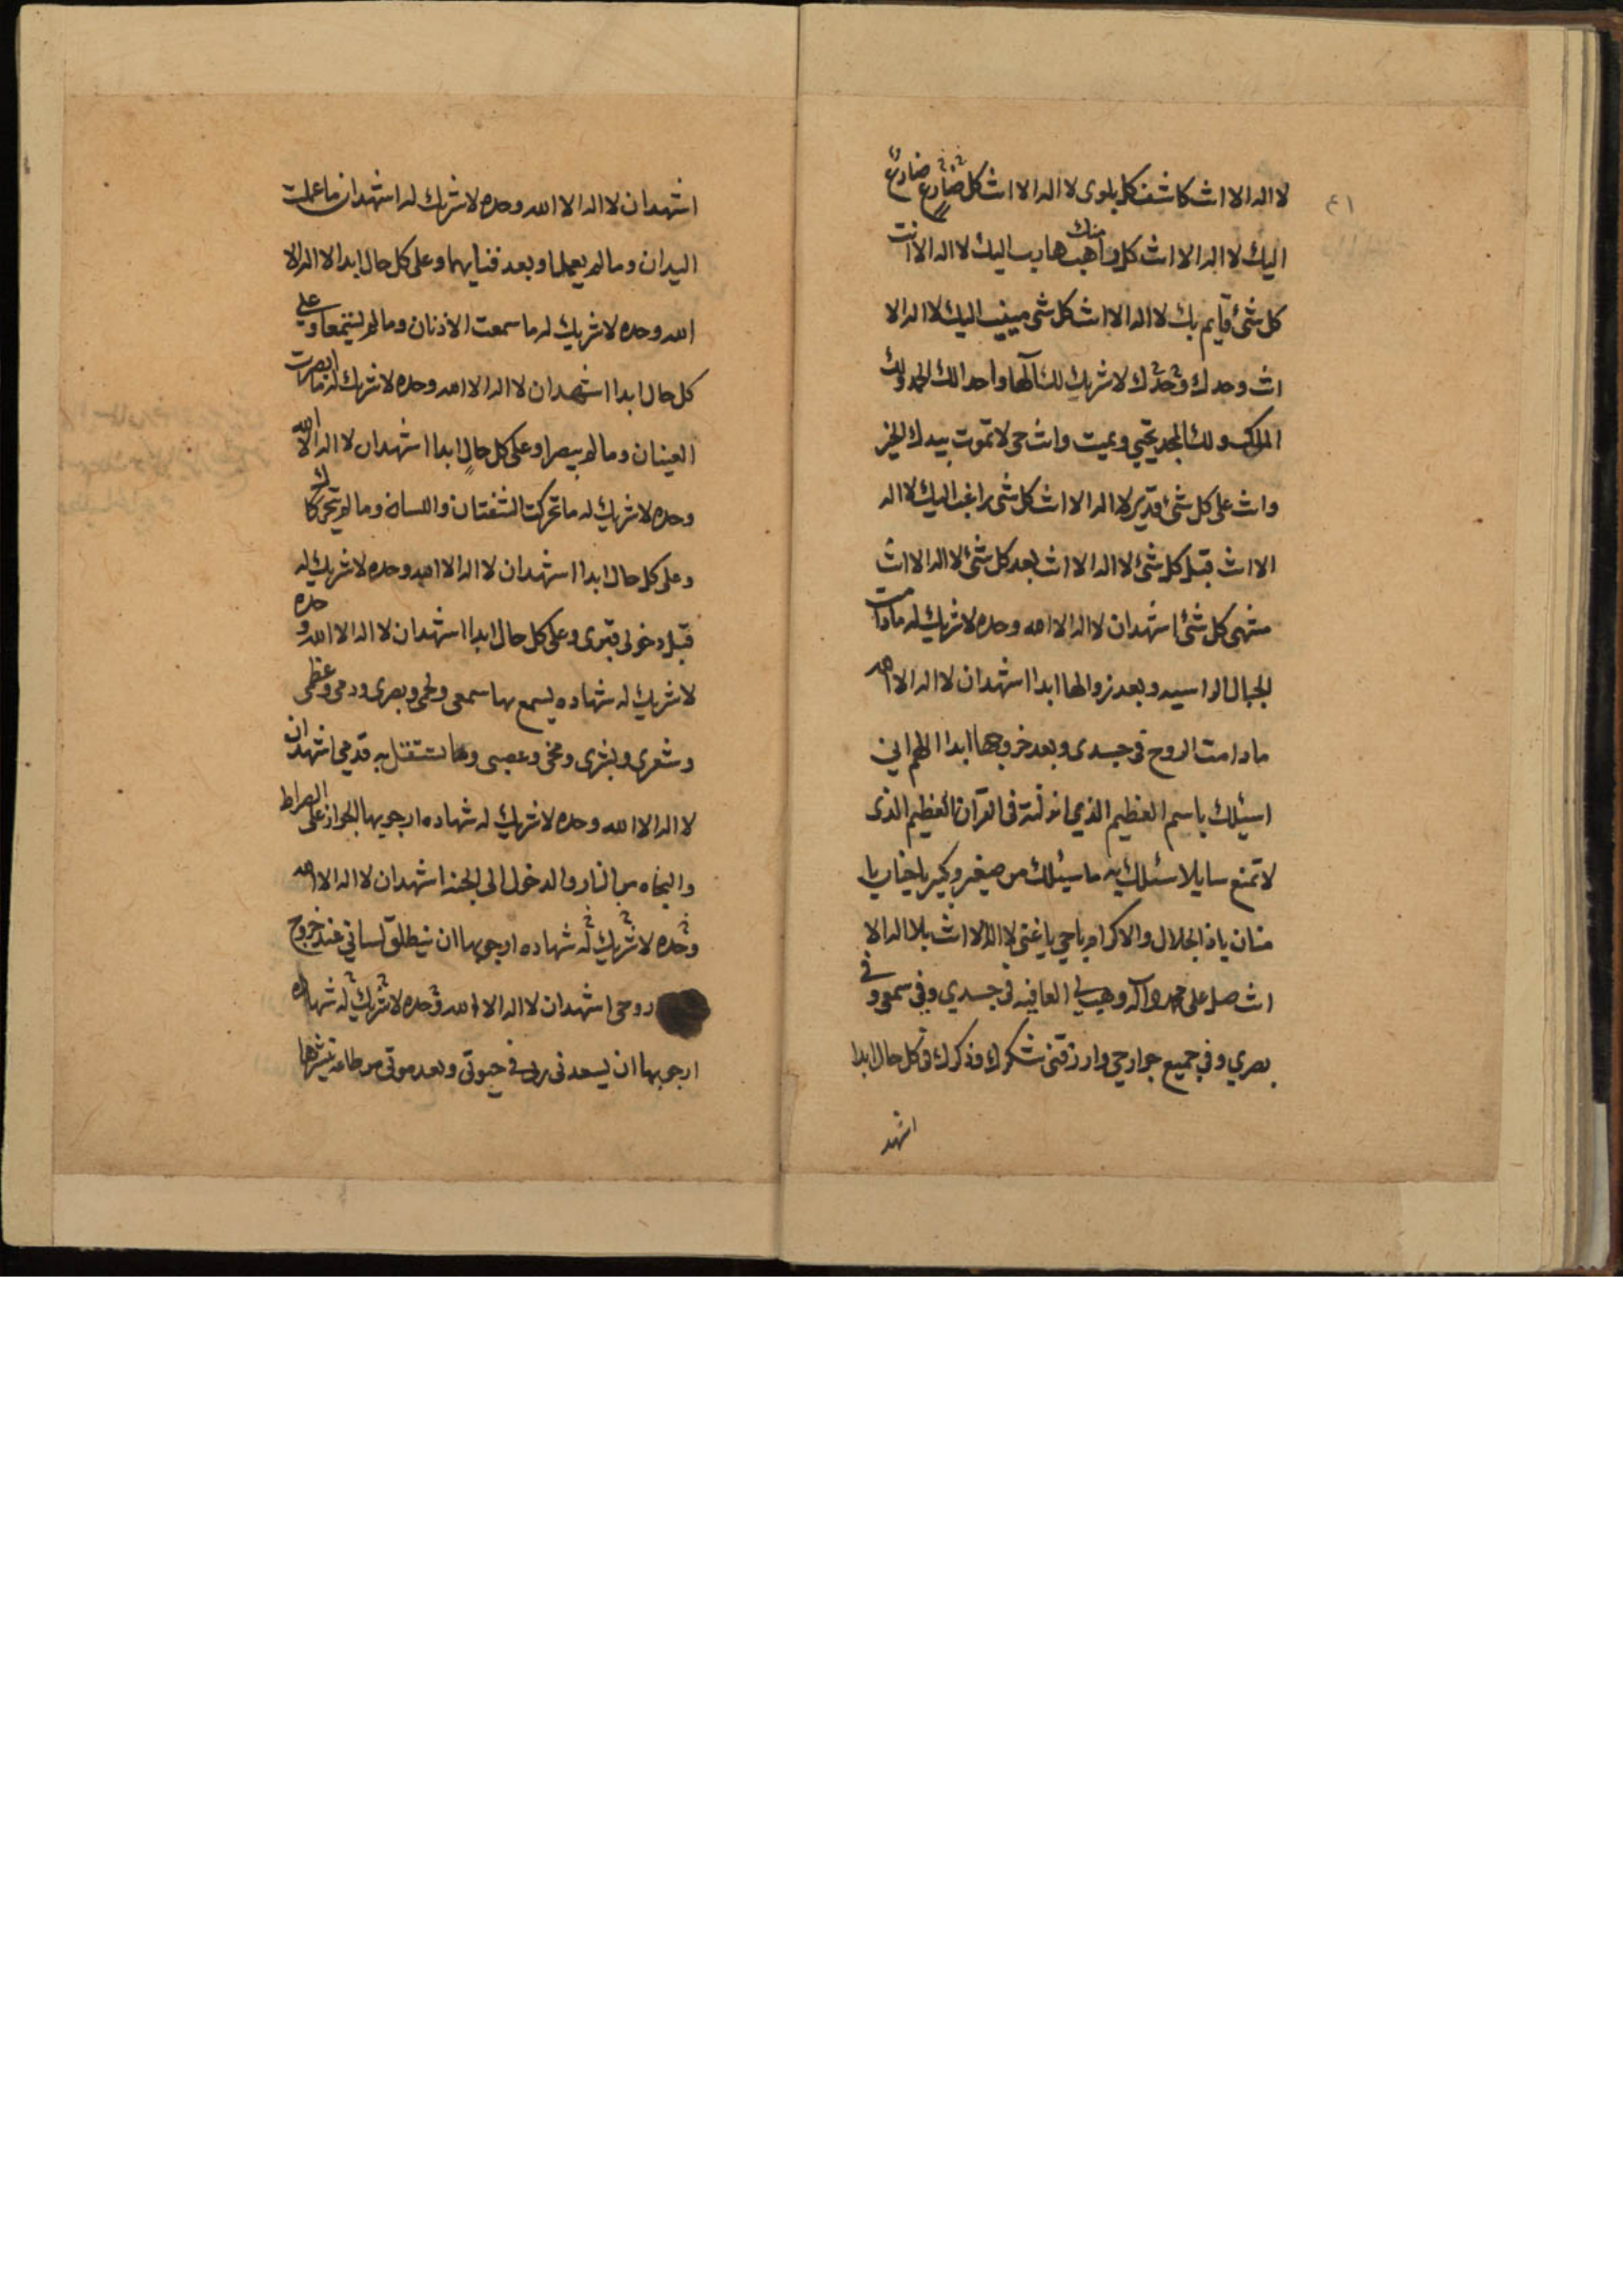 ٤١
لا اله الا انت كاشف كل بلوى لا اله الا انت كل ضارع ضارع
اليك لا اله الا انت كل راهب منك هارب اليك لا اله الا انت
كل شئ قايم بك لا اله الا انت كل شئ منيب اليك لا اله الا
انت وحدك وحدك لا شريك لك آلها واحدا لك الحمد ولك
الملك ولك المجد تحيي وتميت وانت حى لا تموت بيدك الخير
وانت على كل شئ قدير لا اله الا انت كل شئ راغب اليك لا اله
الا انت قبل كل شئ لا اله الا انت بعد كل شئ لا اله الا انت
منتهى كل شئ اشهد ان لا اله الا الله وحده لا شريك له مادامت
الجبال الراسيه وبعد زوالها ابدا اشهد ان لا اله الا الله
مادامت الروح فى جسدى وبعد خروجها ابدا اللهم اني
اسئلك باسم العظيم الذي انزلته فى القرآن العظيم الذى
لا تمنع سايلا سئلك به ما سئلك من صغير وكبير يا حنان يا
منان يا ذا الجلال والاكرام يا حي يا غنى لا اله الا انت بلا اله الا
انت صل على محمد وآله وهب لي العافيه فى جسدي وفي سمعى وفي
بصري وفي جميع جوارحي وارزقنى شكرك وذكرك فى كل حال ابدا
اشهد
اشهد ان لا اله الا الله وحده لا شريك له اشهد ان ما عملت
اليدان وما لم يعملا وبعد فنايهما وعلى كل حال ابدا لا اله الا
الله وحده لا شريك له ما سمعت الاذنان وما لم يسمعا وعلى
كل حال ابدا اشهد ان لا اله الا الله وحده لا شريك له ما ابصرت
العينان وما لم يبصرا وعلى كل حال ابدا اشهد ان لا اله الا الله
وحده لا شريك له ما تحركت الشفتان واللسان وما لم يتحركا
وعلى كل حال ابدا اشهد ان لا اله الا الله وحده لا شريك له
قبل دخولى قبرى وعلى كل حال ابدا اشهد ان لا اله الا الله وحده
لا شريك له شهاده يسمع بها سمعى ولحمى وبصرى ودمى وعظمى
وشعرى وبشرى ومخى وعصبى وما تستقل به قدمي اشهد ان
لا اله الا الله وحده لا شريك له شهاده ارجو بها الجواز على الصراط
والنجاه من النار والدخول الى الجنه اشهد ان لا اله الا الله
وحده لا شريك له شهاده ارجو بها ان ينطلق لساني عند خروج
روحى اشهد ان لا اله الا الله وحده لا شريك له شهاده
ارجو بها ان يسعدنى ربى في حيوتى وبعد موتى من طاعه ينشرها